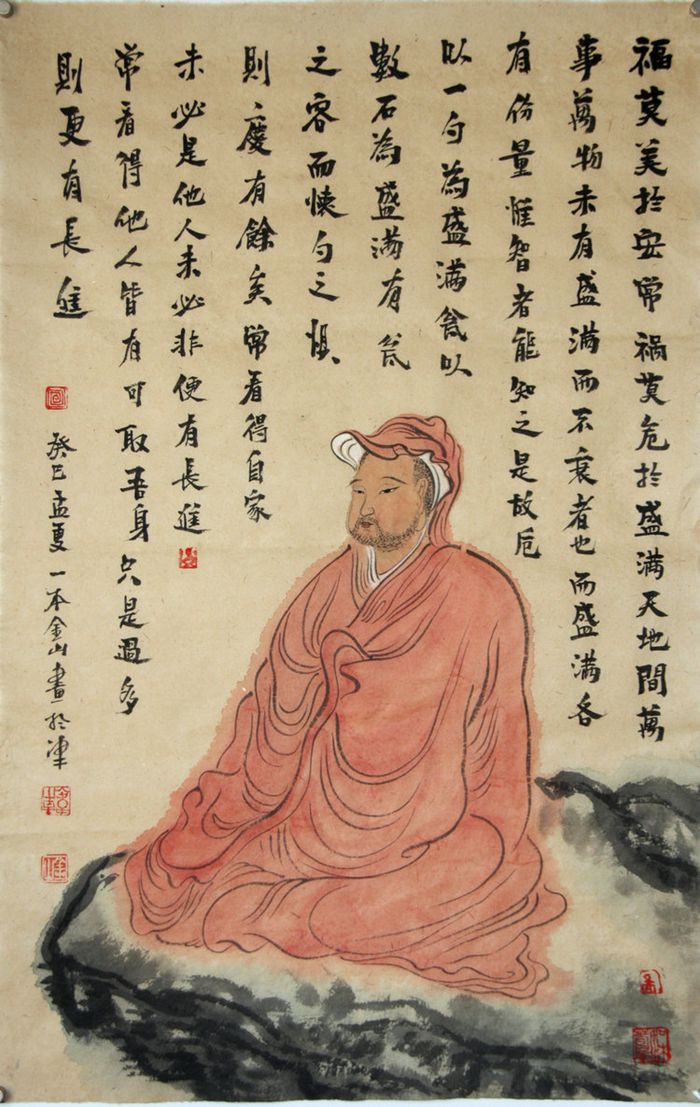 福莫美於安常禍莫危於盛滿天地間萬
事萬物未有盛滿而不衰者也而盛滿各
有份量惟智者能知之是故卮
以一勺為盛滿瓮以
數石為盛滿有瓮
之容而懐勺之惧
則慶有餘矣常看得自家
未必是他人未必非便有長進
常看得他人皆有可取吾身只是過多
則更有長進
癸巳孟夏一本金山畫於津